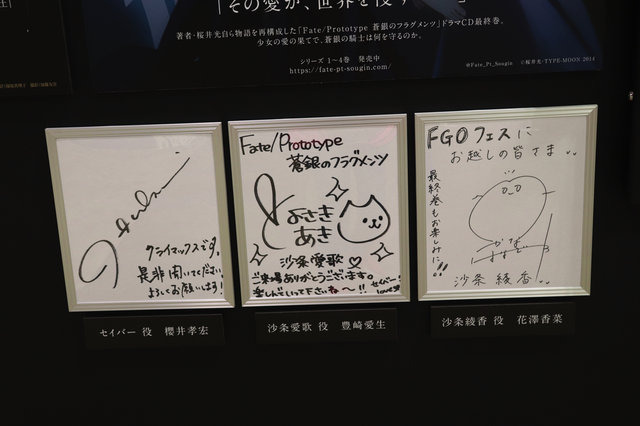 「その愛が、世界を
著者・桜井光自ら物語を再構成した「Fate/Prototype 蒼銀のフラグメンツ」ドラマCD最終巻。
少女の愛の果てで、蒼銀の騎士は何を守るのか。
シリーズ 1〜4巻 発売中
https://fate-pt-sougin.com/
@Fate_Pt_Sougin ©桜井光・TYPE-MOON 2014
クライマックスです。
是非聞いてください
よろしくお願いします!
セイバー 役 櫻井孝宏
Fate/Prototype
蒼銀のフラグメンツ
とよさき
あき
沙条愛歌♡
ご来場ありがとうございます。
楽しんでいって下さいね〜!!
セイバー!
love♡
沙条愛歌 役 豊崎愛生
FGOフェスに
お越しの皆さま
最終巻もお楽しみに!!
沙条 綾香
沙条綾香 役 花澤香菜